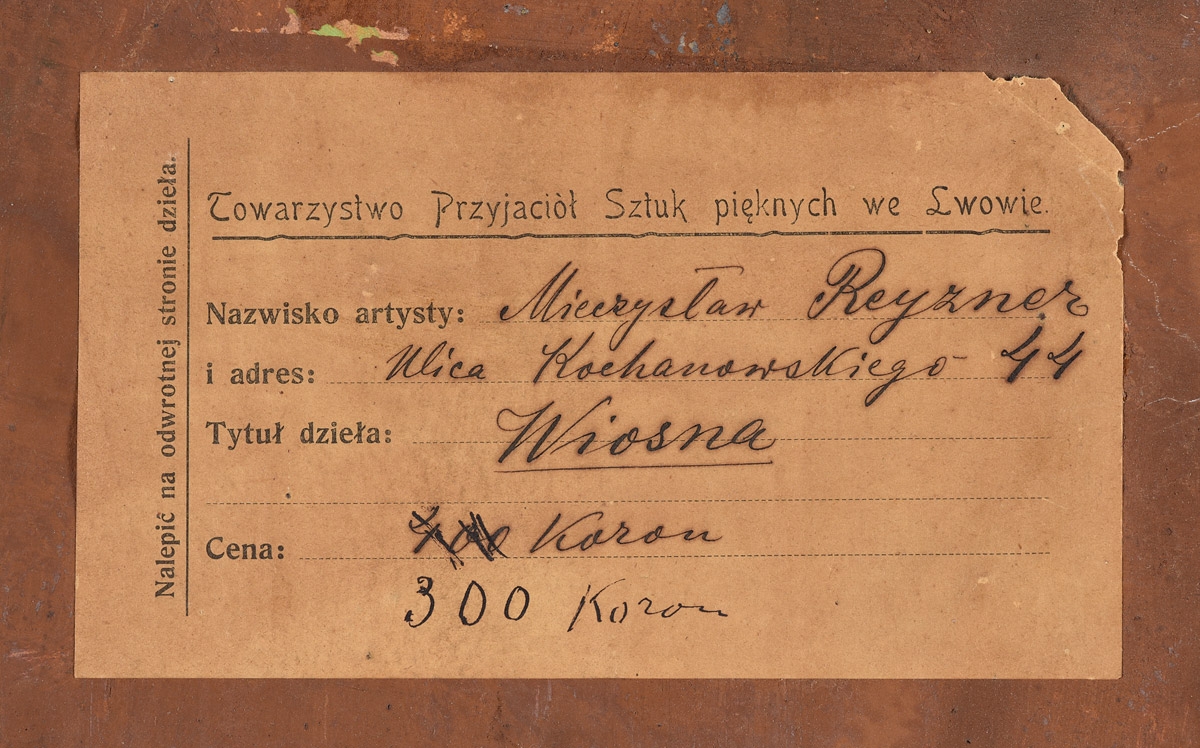 Nalepić na odwrotnej stronie dzieła.
Towarzystwo Przyjaciół Sztuk pięknych we Lwowie.
Nazwisko artysty: Mieczysław Reyzner
i adres: Ulica Kochanowskiego 44
Tytuł dzieła: Wiosna
Cena: 400 Koron
300 Koron